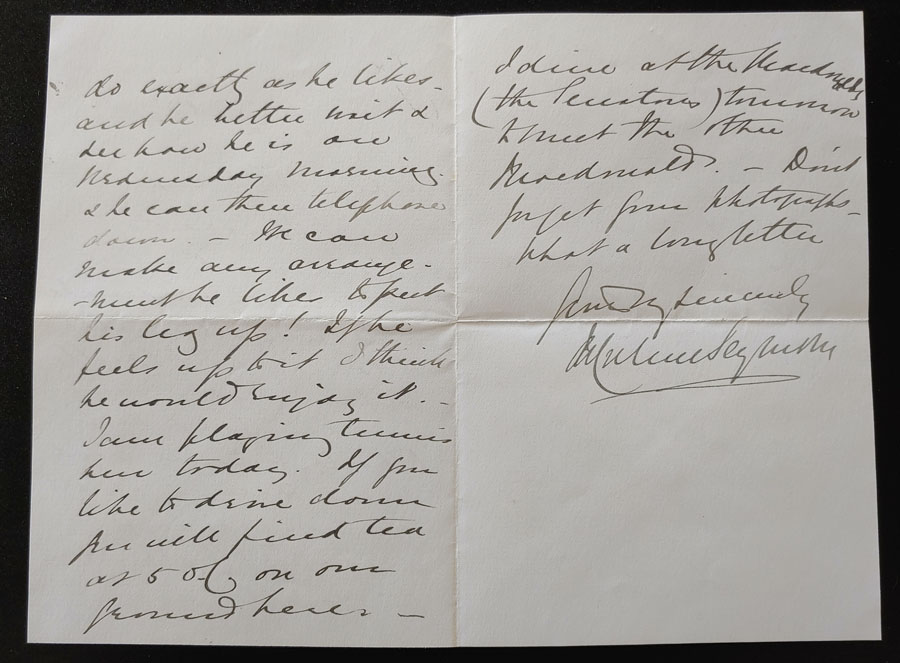 do exactly as he likes -
and he better wait &
see how he is on
Wednesday morning.
& he can then telephone
down. - We can
make any arrange-
-ment he likes to put
his leg up! If he
feels up to it I think
he would enjoy it. -
I am playing tennis
here today. If you
like to drive down
you will find tea
at 5 o'c on our
ground here. -
I dine at the Macdonalds
(the Senators) tomorrow
to meet the other
Macdonalds. - Don't
forget your photographs -
What a long letter
Yours sincerely
Seymour